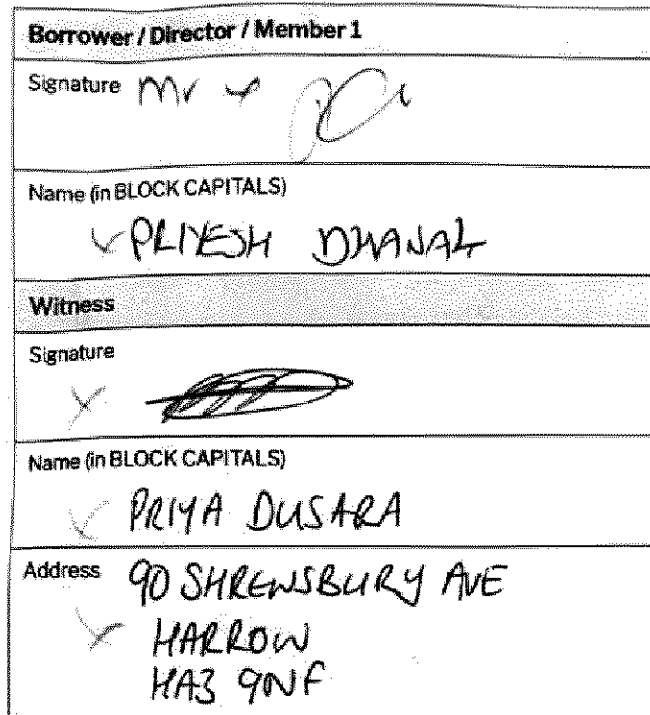 Borrower / Director / Member 1
Signature Mr
Name (in BLOCK CAPITALS)
PRIYESH DHANAK
Witness
Signature
Name (in BLOCK CAPITALS)
PRIYA DUSARA
Address 90 SHREWSBURY AVE
HARROW
HA3 9NF